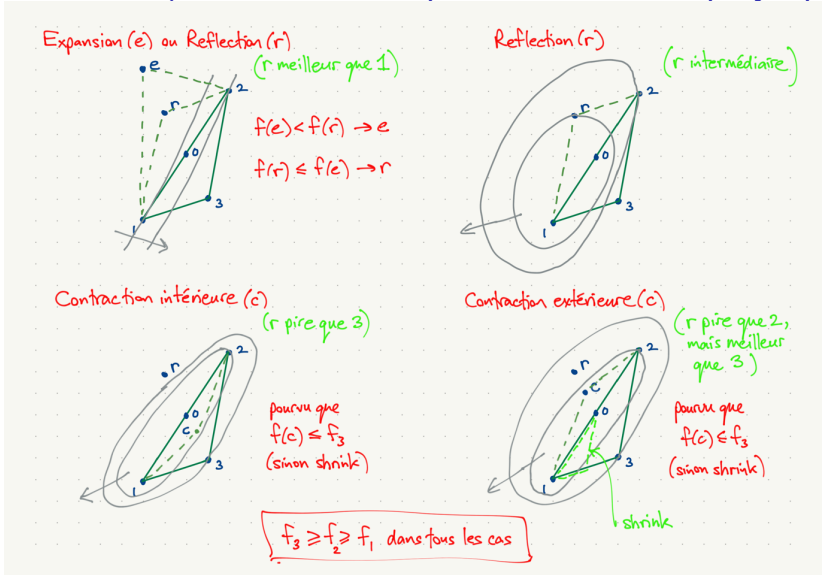 Expansion (e) ou Reflection (r)
(r meilleur que 1)
e
r
2
0
3
1
f(e) < f(r) → e
f(r) ≤ f(e) → r
Reflection (r)
(r intermédiaire)
r
2
0
3
1
Contraction intérieure (c)
(r pire que 3)
r
2
0
c
3
1
pourvu que
f(c) ≤ f₃
(sinon shrink)
Contraction extérieure (c)
(r pire que 2,
mais meilleur
que 3)
r
2
c
0
3
1
pourvu que
f(c) ≤ f₃
(sinon shrink)
shrink
f₃ ≥ f₂ ≥ f₁ dans tous les cas